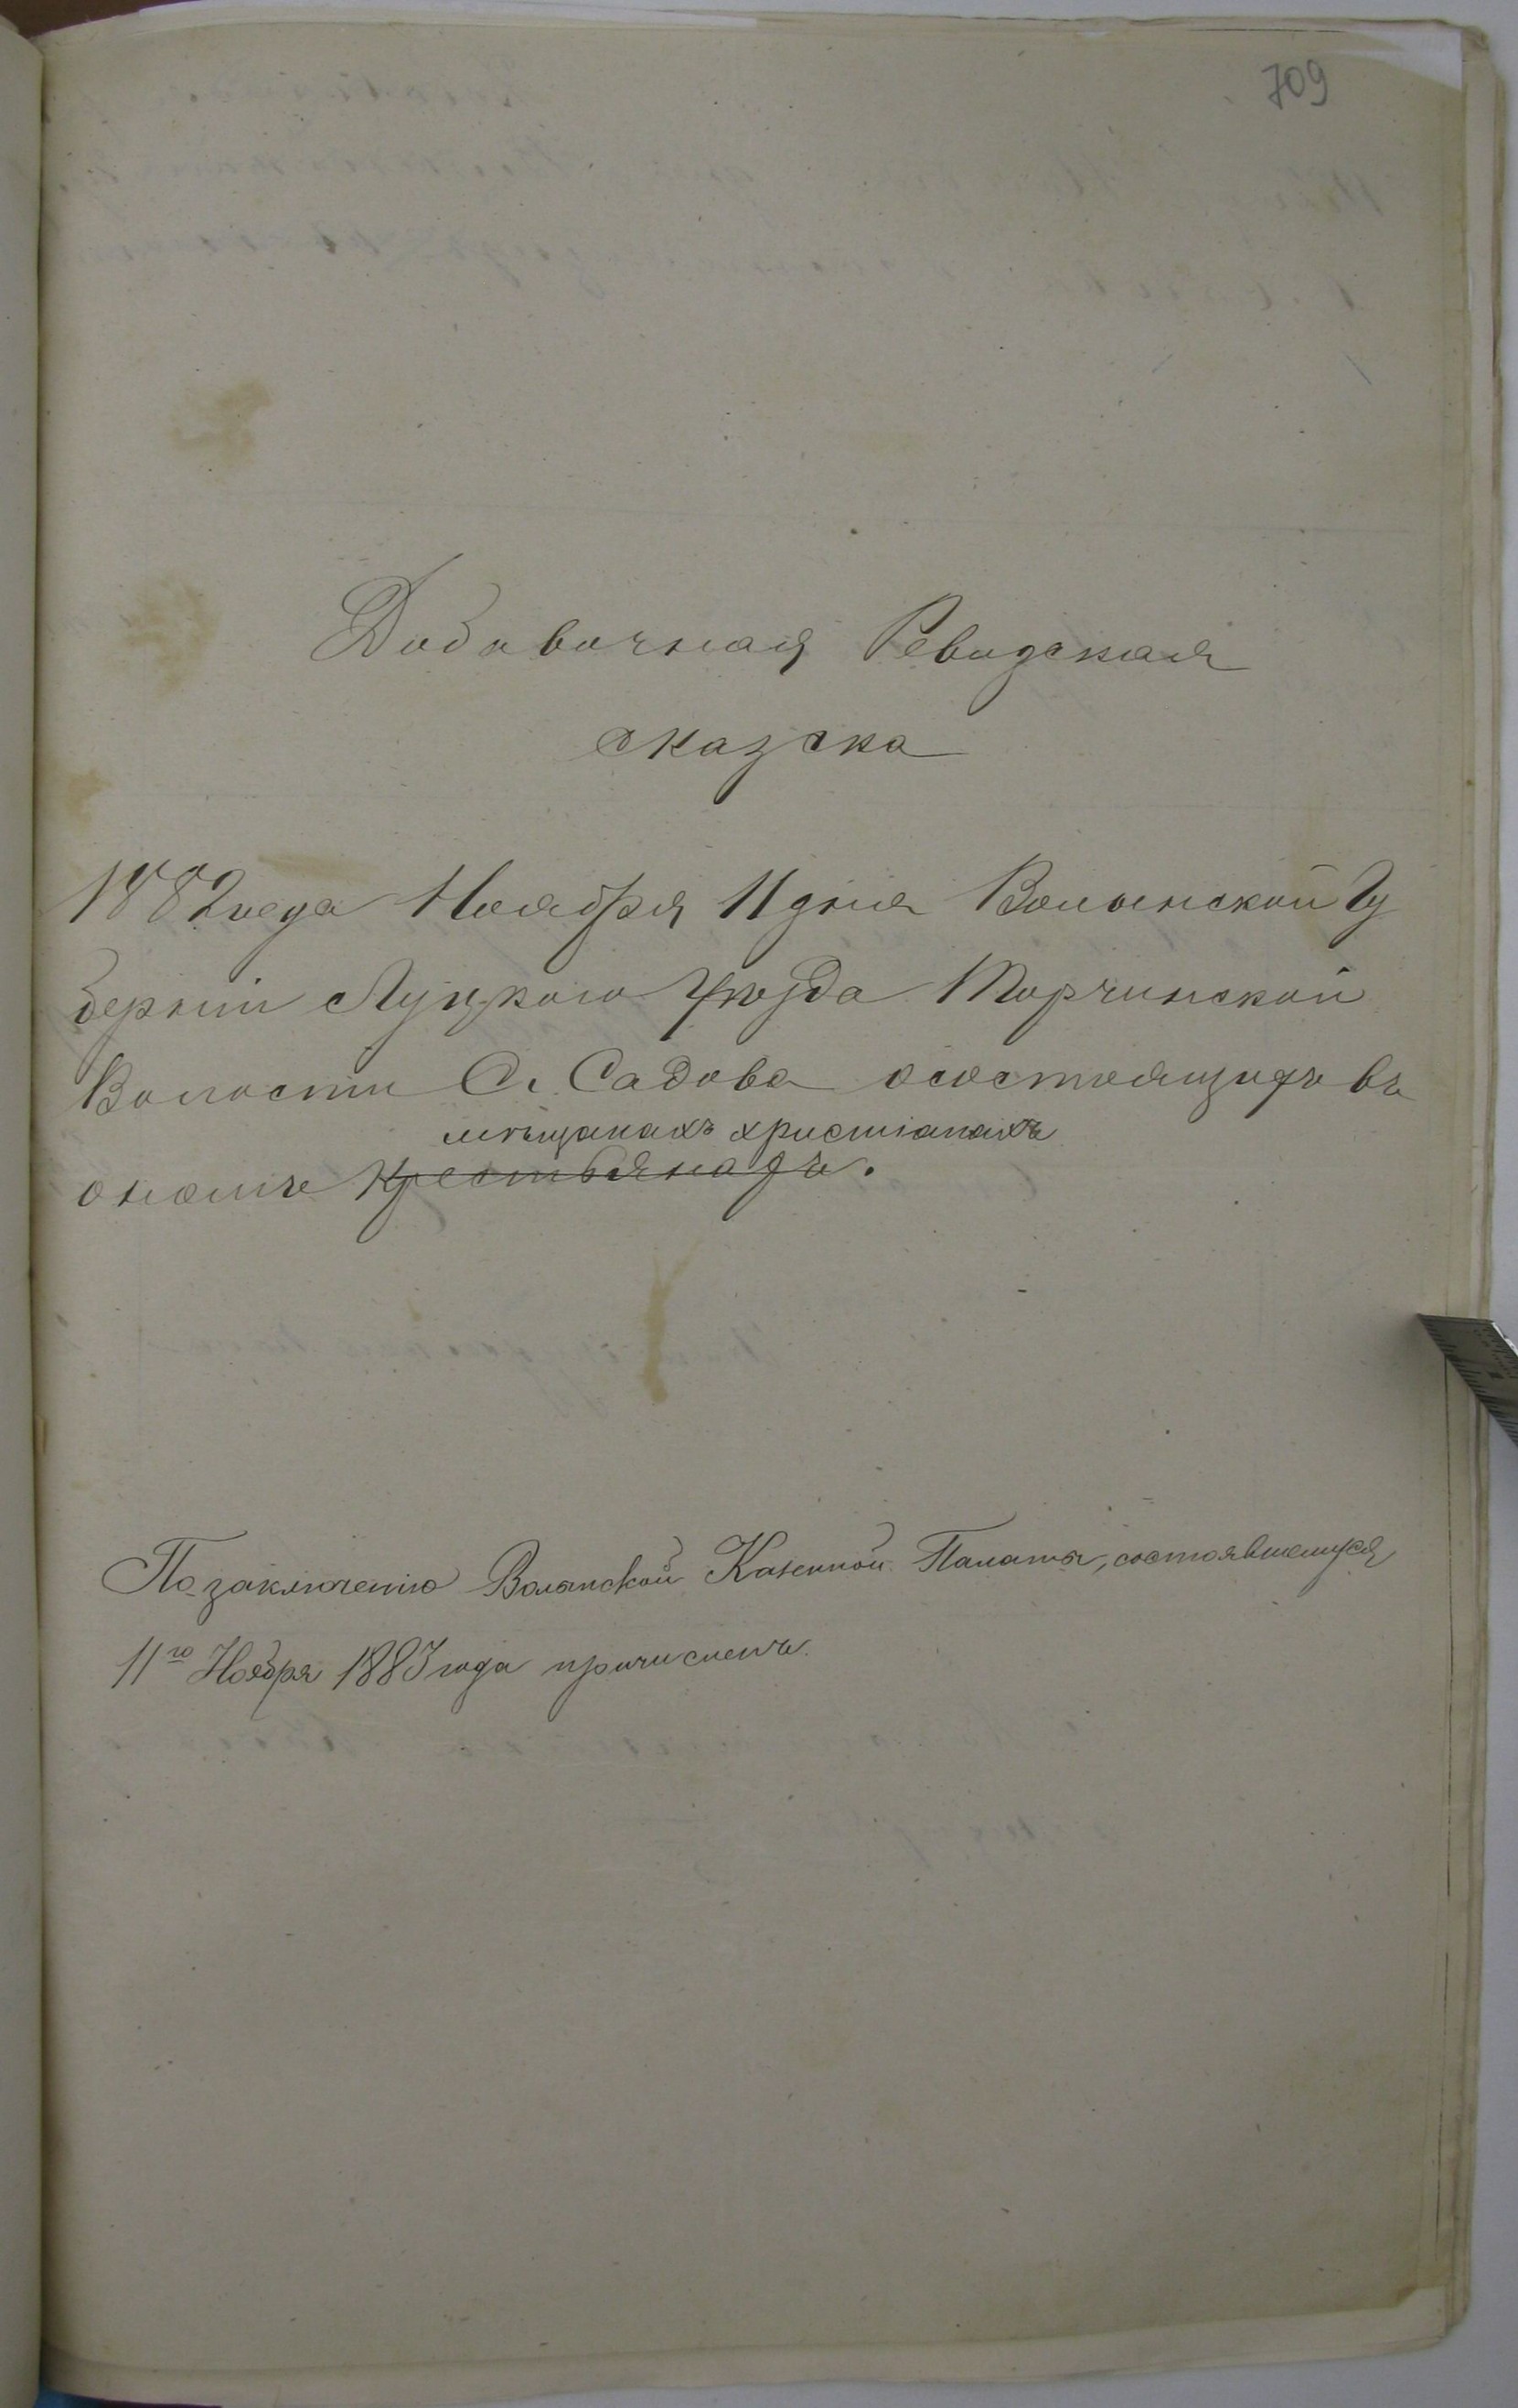 709
Добавочная Ревизская
сказска
1882 года Ноября 11 дня Волынской Гу
берніи Луцкого Уѣзда Торчинской
Волости С. Садова осостоящихъ въ
мѣщанахъ христіанахъ
ономъ крестьянахъ.
По заключенію Волынской Казенной Палаты, состоявшемуся
11го Ноября 1883 года причисленъ.